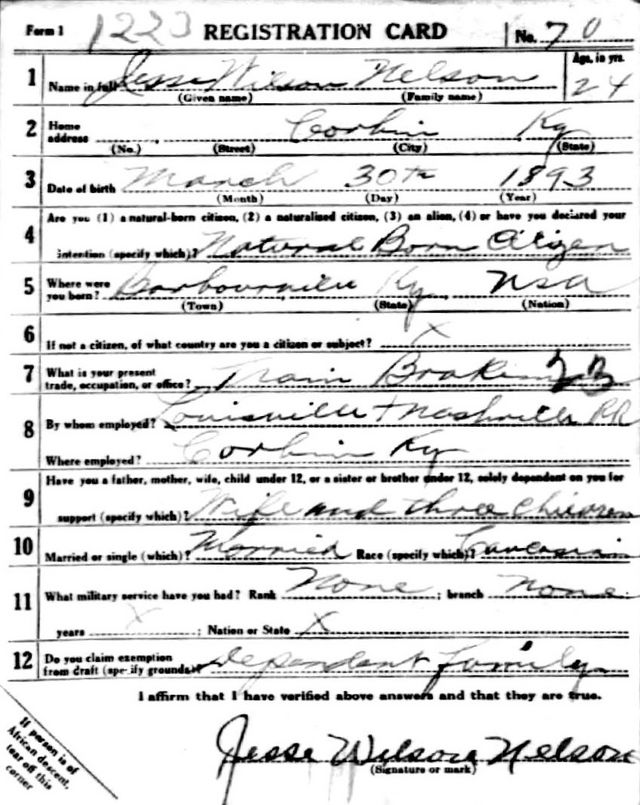 Form 1 1223 REGISTRATION CARD No. 70
1 Name in full Jesse Wilson Nelson Age, in yrs. 24
(Given name) (Family name)
2 Home address Corbin Ky
(No.) (Street) (City) (State)
3 Date of birth March 30th 1893
(Month) (Day) (Year)
4 Are you (1) a natural-born citizen, (2) a naturalized citizen, (3) an alien, (4) or have you declared your
intention (specify which)? Natural Born Citizen
5 Where were you born? Barbourville Ky USA
(Town) (State) (Nation)
6 If not a citizen, of what country are you a citizen or subject? X
7 What is your present trade, occupation, or office? Train Brakeman 23
8 By whom employed? Louisville + Nashville RR
Where employed? Corbin Ky
9 Have you a father, mother, wife, child under 12, or a sister or brother under 12, solely dependent on you for
support (specify which)? Wife and three children
10 Married or single (which)? Married Race (specify which)? Caucasian
11 What military service have you had? Rank None ; branch none
years X ; Nation or State X
12 Do you claim exemption from draft (specify grounds)? dependent family
I affirm that I have verified above answers and that they are true.
Jesse Wilson Nelson
(Signature or mark)
If person is of
African descent,
tear off this
corner